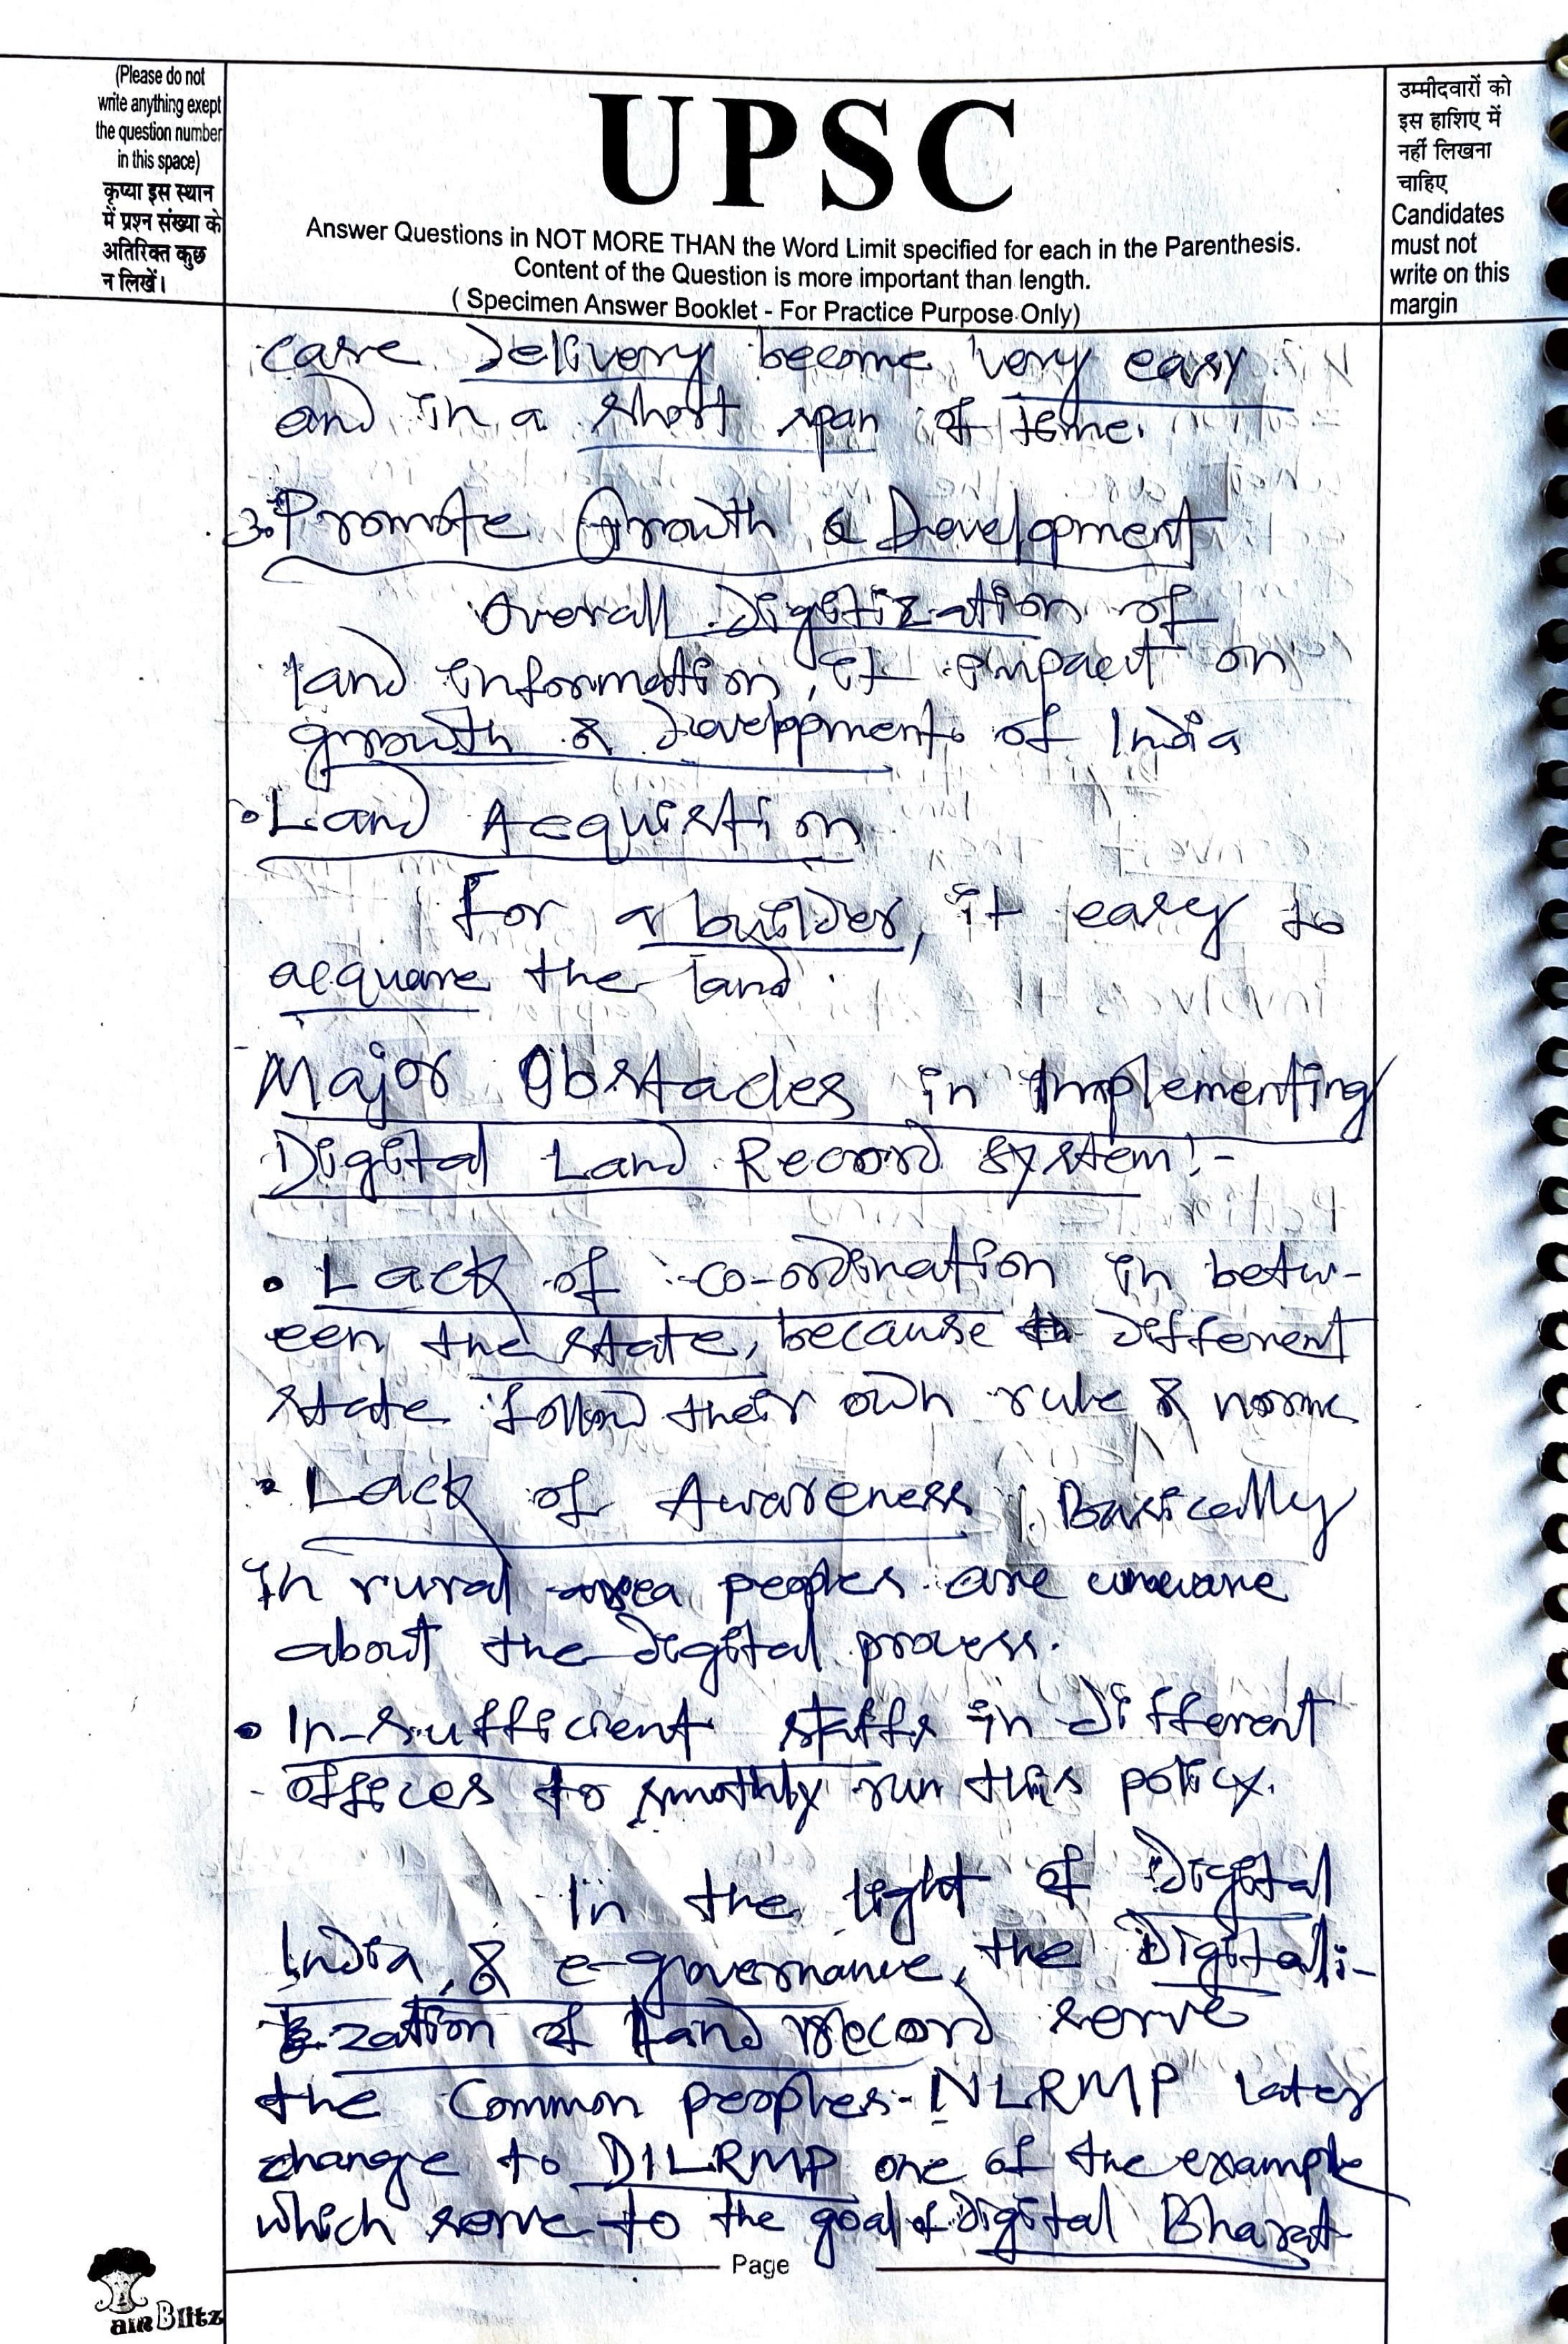 (Please do not
write anything exept
the question number
in this space)
कृप्या इस स्थान
में प्रश्न संख्या के
अतिरिक्त कुछ
न लिखें।
UPSC
Answer Questions in NOT MORE THAN the Word Limit specified for each in the Parenthesis.
Content of the Question is more important than length.
( Specimen Answer Booklet - For Practice Purpose Only)
उम्मीदवारों को
इस हाशिए में
नहीं लिखना
चाहिए
Candidates
must not
write on this
margin
case delivery become very easy
and in a short span of time.
3. Promote Growth & Development
Overall Digitization of
land information, it impact on
growth & development of India
• Land Acquistion
For a builder, it easy to
acquare the land
Major Obstacles in Implementing
Digital Land Record system:-
• Lack of co-ordination in betw-
een the state, because different
state follow their own rule & norms
• Lack of Awareness. Basically
in rural area peoples are unaware
about the digital process.
• In-sufficient staffs in different
offices to smothly run this policy.
In the light of Digital
India, & e-governance, the Digitali-
zation of land record serve
the Common peoples. NLRMP later
change to DILRMP one of the example
which serve to the goal of digital Bharat
Page
aim Blitz